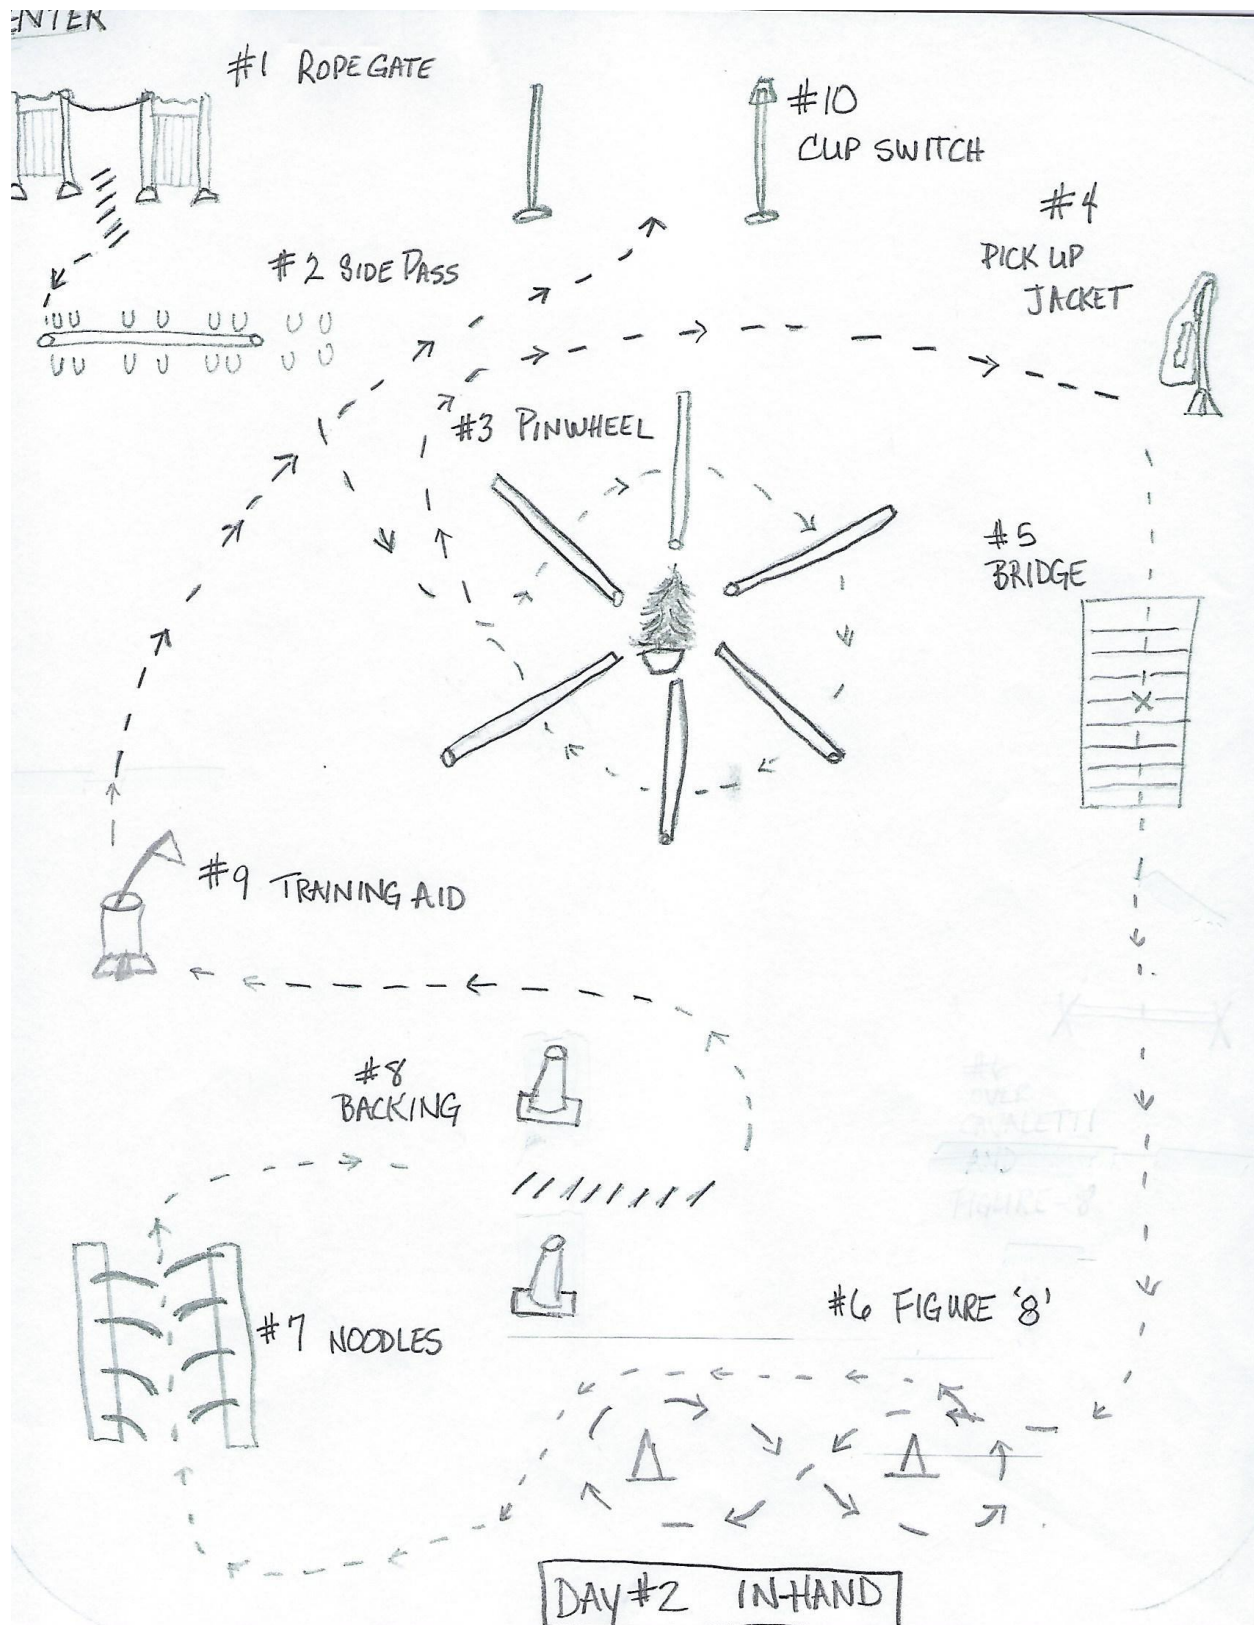 ENTER
#1 ROPE GATE
#10
CUP SWITCH
#4
PICK UP
JACKET
#2 SIDE PASS
#3 PINWHEEL
#5
BRIDGE
#9 TRAINING AID
#8
BACKING
CAVALETTI
AND
FIGURE-8
#6 FIGURE '8'
#7 NOODLES
DAY #2 IN-HAND